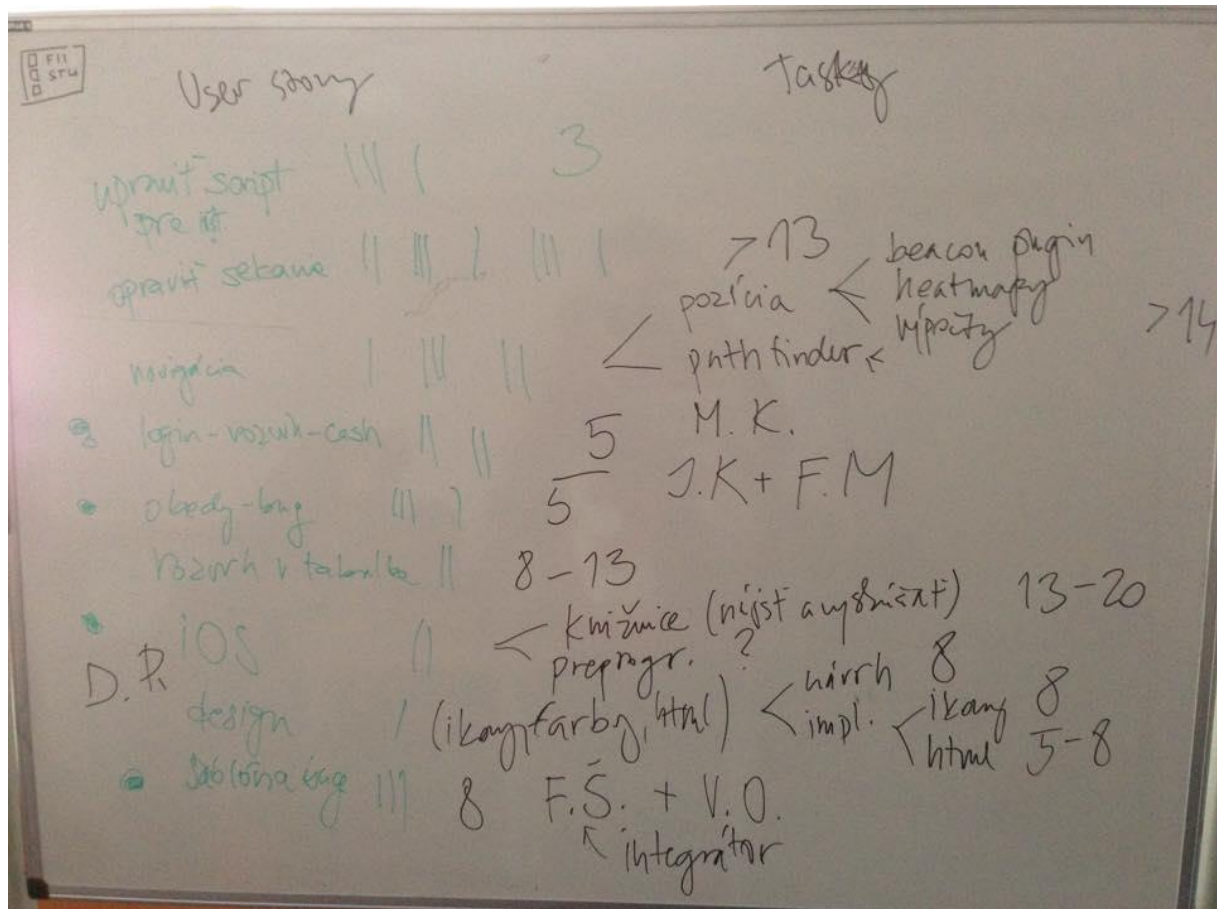 FII
STU
User story
Tasky
upraviť script 3
pre
opraviť sekanie >13
beacon plugin
pozícia < heatmapy
výpočty >14
navigácia < pathfinder
login-rozvrh-cash 5 M. K.
obedy-bug 5 J.K + F.M
rozvrh v tabuľke 8-13
iOS < knižnice (nájsť a vyskúšať) 13-20
preprogr. ?
D. P.
design (ikony, farby, html) < návrh 8
impl. < ikony 8
html 5-8
šablóna bug 8 F.Š. + V.O.
integrátor